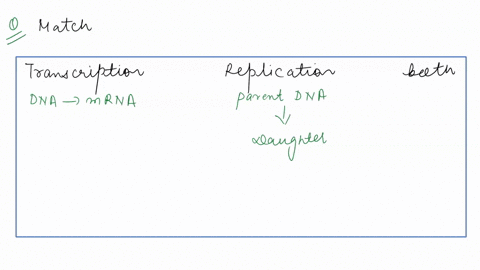 Q Match
Transcription Replication both
DNA → mRNA parent DNA
↓
Daughter